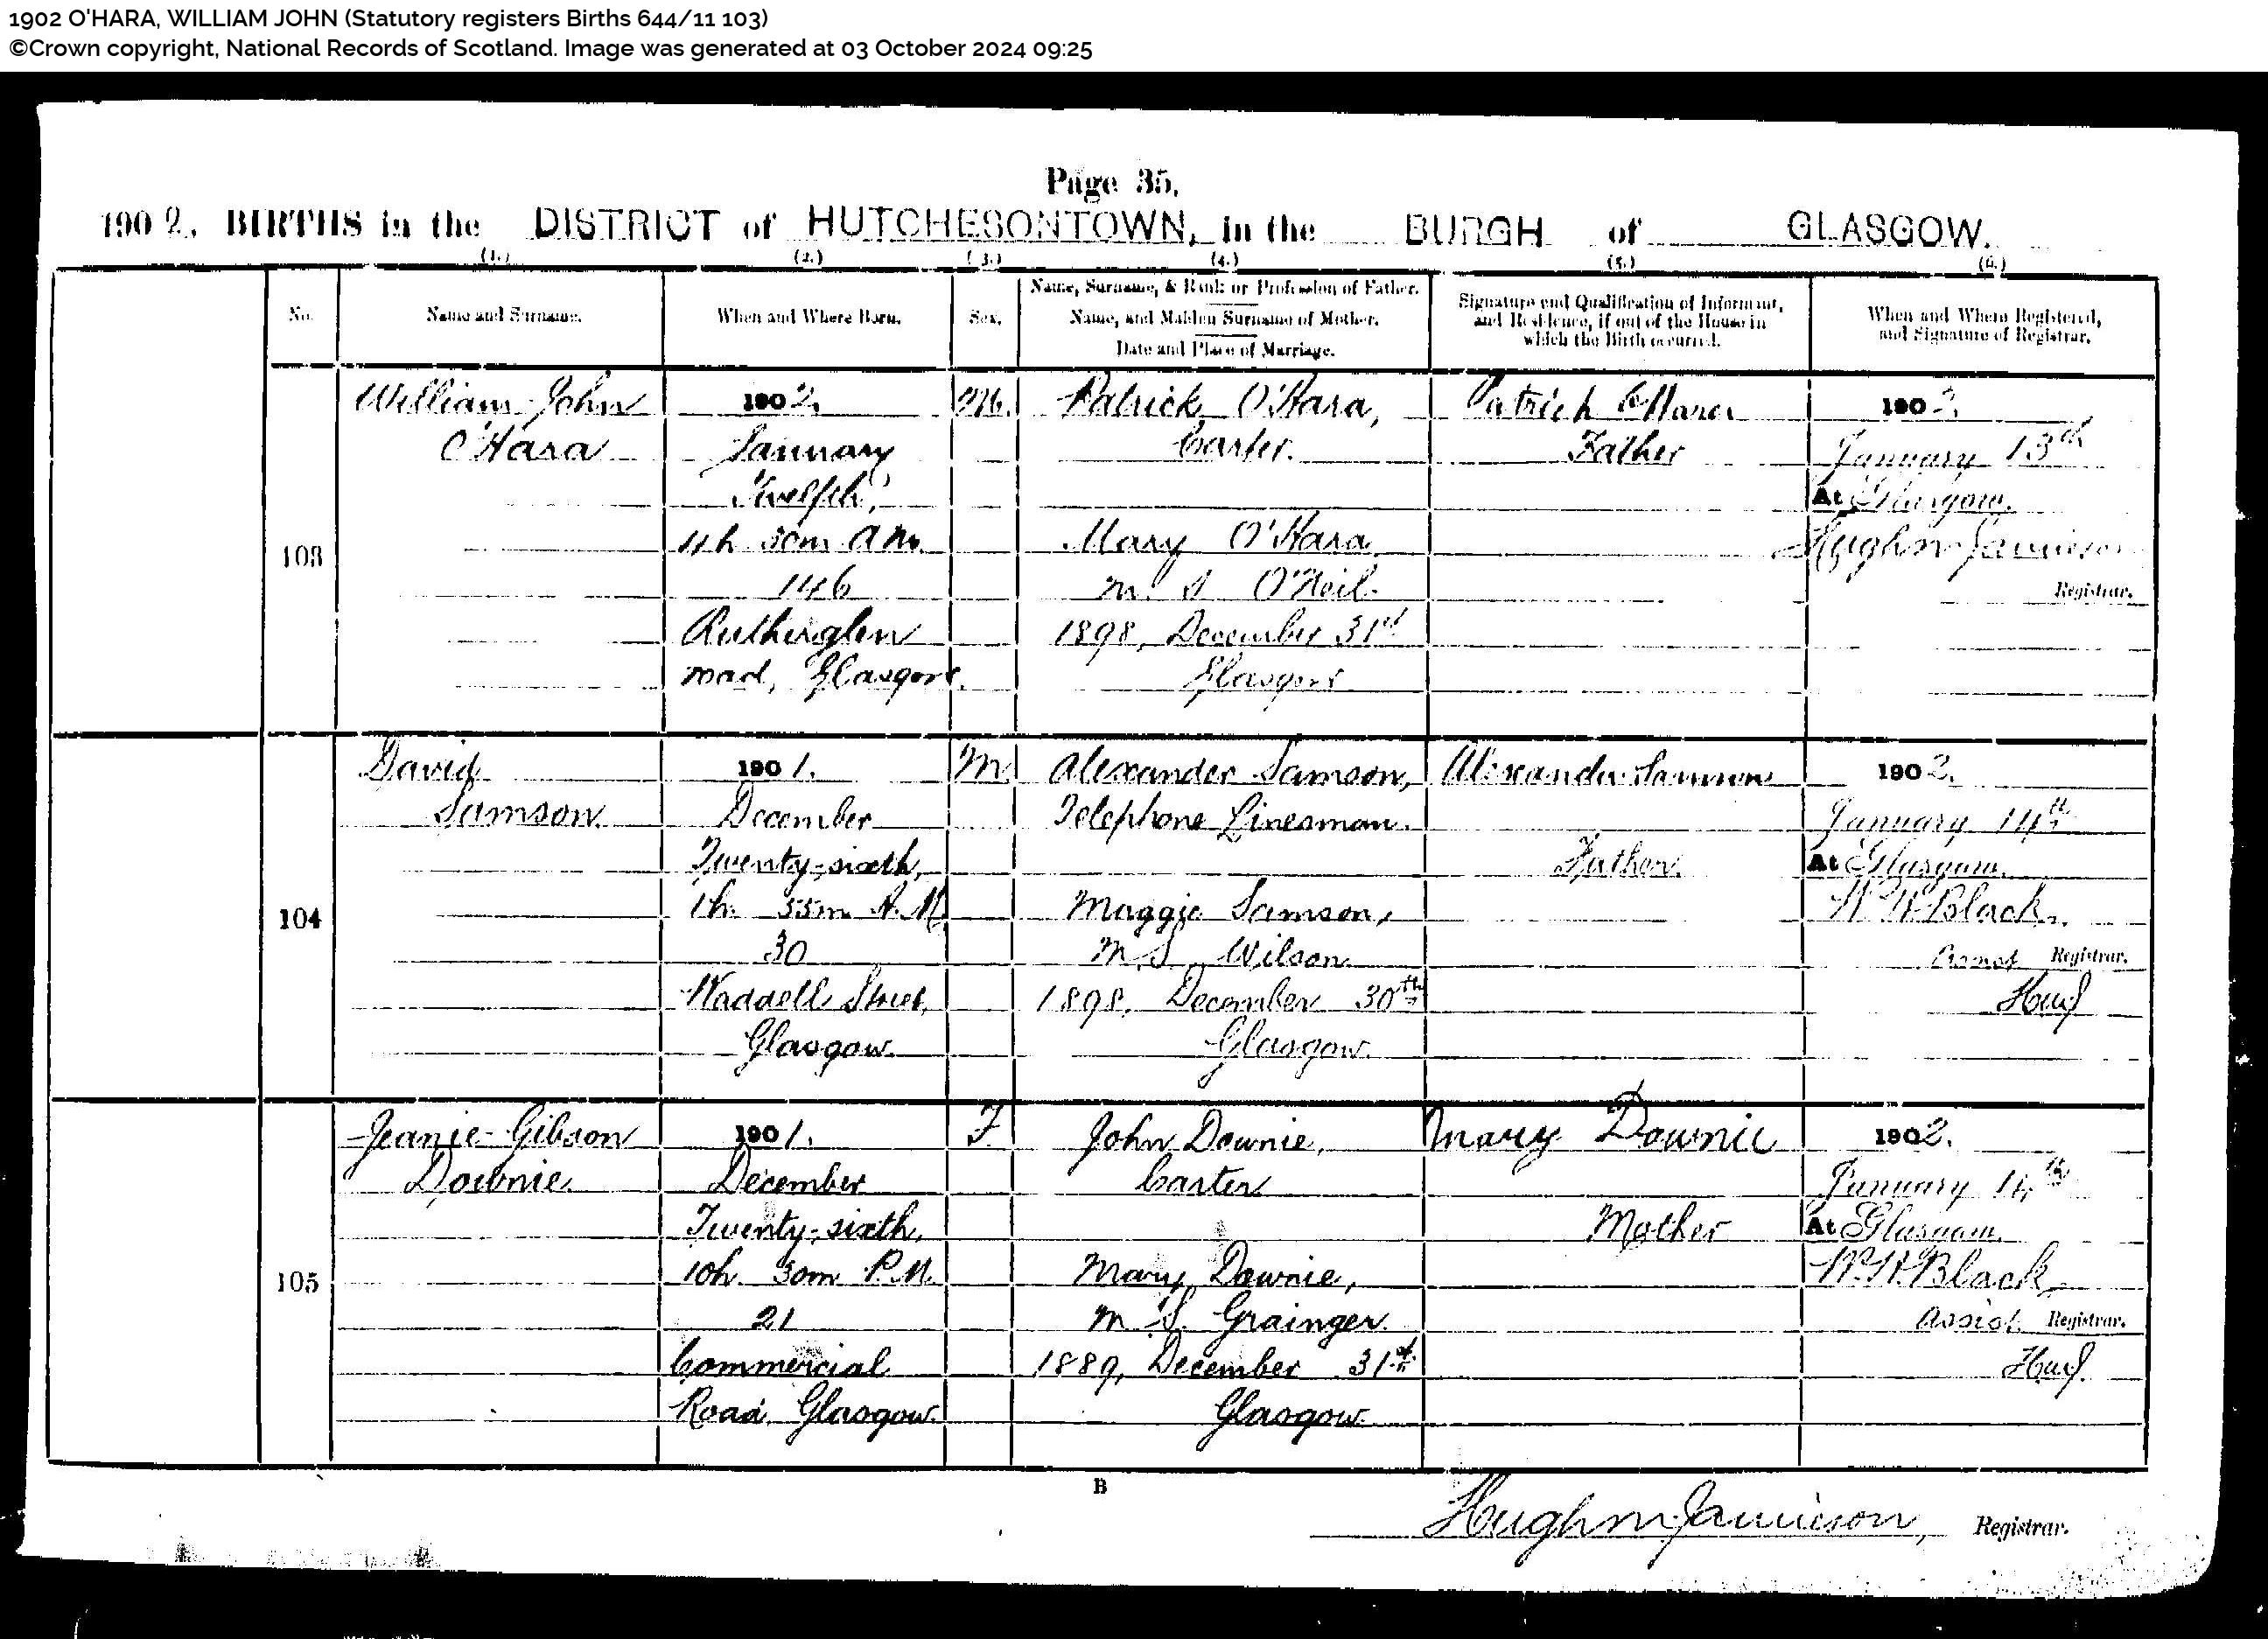 1902 O'HARA, WILLIAM JOHN (Statutory registers Births 644/11 103)
©Crown copyright, National Records of Scotland. Image was generated at 03 October 2024 09:25
Page 35,
1902. BIRTHS in the DISTRICT of HUTCHESONTOWN, in the BURGH of GLASGOW.
(1.) (2.) (3.) (4.) (5.) (6.)
No.
Name and Surname.
When and Where Born.
Sex.
Name, Surname, & Rank or Profession of Father.
Name, and Maiden Surname of Mother.
Date and Place of Marriage.
Signature and Qualification of Informant,
and Residence, if out of the House in
which the Birth occurred.
When and Where Registered,
and Signature of Registrar.
103
William John
O'Hara
1902.
January
Twelfth,
4h 30m AM.
146
Rutherglen
road, Glasgow.
M.
Patrick O'Hara,
Carter.
Mary O'Hara
m. s O'Neil.
1898, December 31st
Glasgow
Patrick O'Hara
Father
1902.
January 13th
At Glasgow.
Hugh m Jamieson
Registrar.
104
David
Samson.
1901.
December
Twenty-sixth,
1h. 55m A.M.
30
Waddell Street,
Glasgow.
M
Alexander Samson,
Telephone Linesman.
Maggie Samson,
M.S. Wilson
1898, December 30th
Glasgow.
Alexander Samson
Father.
1902.
January 14th
At Glasgow.
W. W. Black,
Assist Registrar.
HmJ
105
Jeanie Gibson
Downie.
1901.
December
Twenty-sixth,
10h. 30m P.M.
21
Commercial
Road, Glasgow.
F.
John Downie,
Carter
Mary Downie,
M.S. Grainger.
1889, December 31st
Glasgow.
Mary Downie
Mother
1902.
January 14th
At Glasgow.
W. W. Black
Assist. Registrar.
HmJ.
B
Hugh m. Jamieson, Registrar.